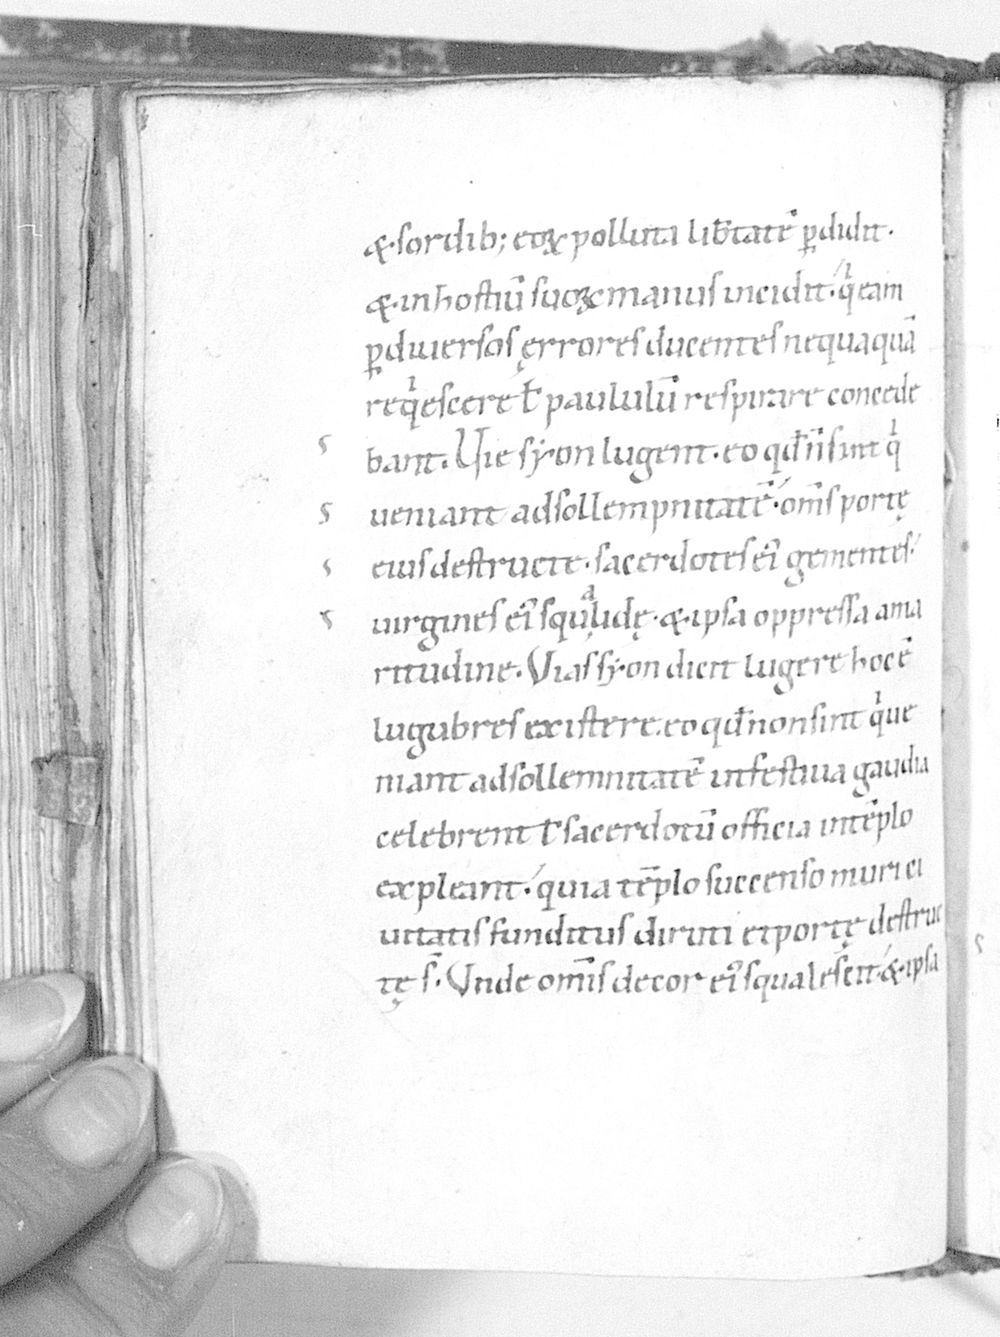 &·sordib; eoꝝ polluta lib̄tatē ꝑdidit·
&·inhostiū suoꝝ manus incidit·́ qͥ eam
ꝑdiuersos ęrrores ducentes nequaquā
reqͥescere ł paululū respirare concede
s bant. Uie syon lugent·eo qđ ñ sint qͥ
s ueniant adsollempnitatē·́ om̄s portę
s eius destructe·sacerdotes ei᾽ gementes·́
s uirgines ei᾽ squalidę·&ipsa oppressa ama
ritudine·Vias syon dicit lugere hoc ē
lugubres existere.eo qđ non sint qͥ ue
niant adsollemnitatē infestiua gaudia
celebrent ł sacerdotū officia intēplo
expleant·́ quia tēplo succenso muri ci
uitatis funditus diruti et portę destruc
tę s̄·Vnde om̄is decor ei᾽ squalescit·́ &·ipsa
s